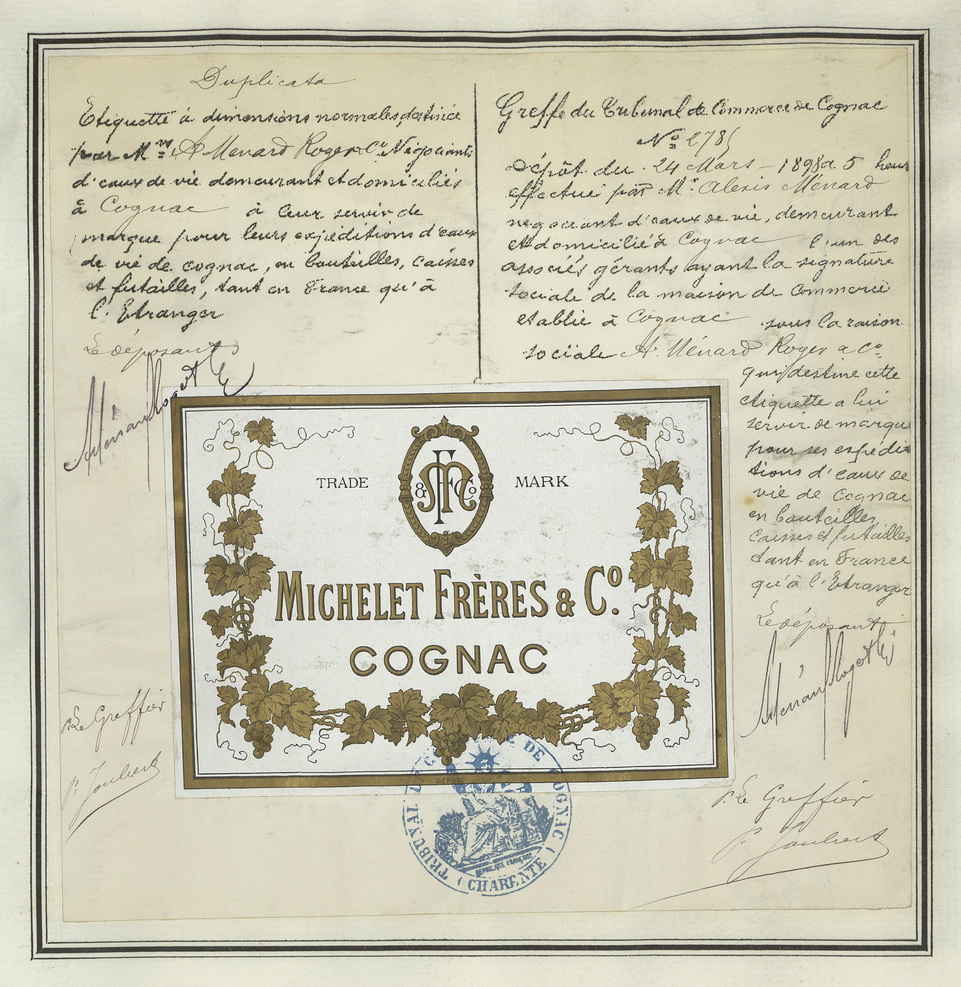 Duplicata
Etiquette à dimensions normales, destinée
par M.rs A. Ménard Roger & Cie Négociants
d'eaux de vie demeurant et domiciliés
à Cognac à leur servir de
marque pour leurs expéditions d'eaux
de vie de cognac, en bouteilles, caisses
et futailles, tant en France qu'à
l'Etranger
Le déposant
Ménard Roger & Cie
p. Le Greffier
P. Joubert
Greffe du Tribunal de Commerce de Cognac
No 278
Dépôt du 24 Mars 1898 a 5 heur
effectué par Mr. Alexis Ménard
negociant d'eaux de vie, demeurant
et domicilié à Cognac l'un des
associés gérants ayant la signature
sociale de la maison de Commerce
etablie à Cognac sous la raison
sociale A. Ménard Roger & Co.
qui destine cette
etiquette a lui
servir de marque
pour ses expédi
tions d'eaux de
vie de Cognac
en bouteilles,
caisses et futailles
tant en France
qu'à l'Etranger
Le déposant
Ménard Roger & Cie
p. Le Greffier
P. Joubert
TRADE MARK
& FM Co
MICHELET FRÈRES & Co.
COGNAC
DÉPOSÉ
TRIBUNAL DE COMMERCE DE COGNAC
RÉPUBLIQUE FRANÇAISE
(CHARENTE)